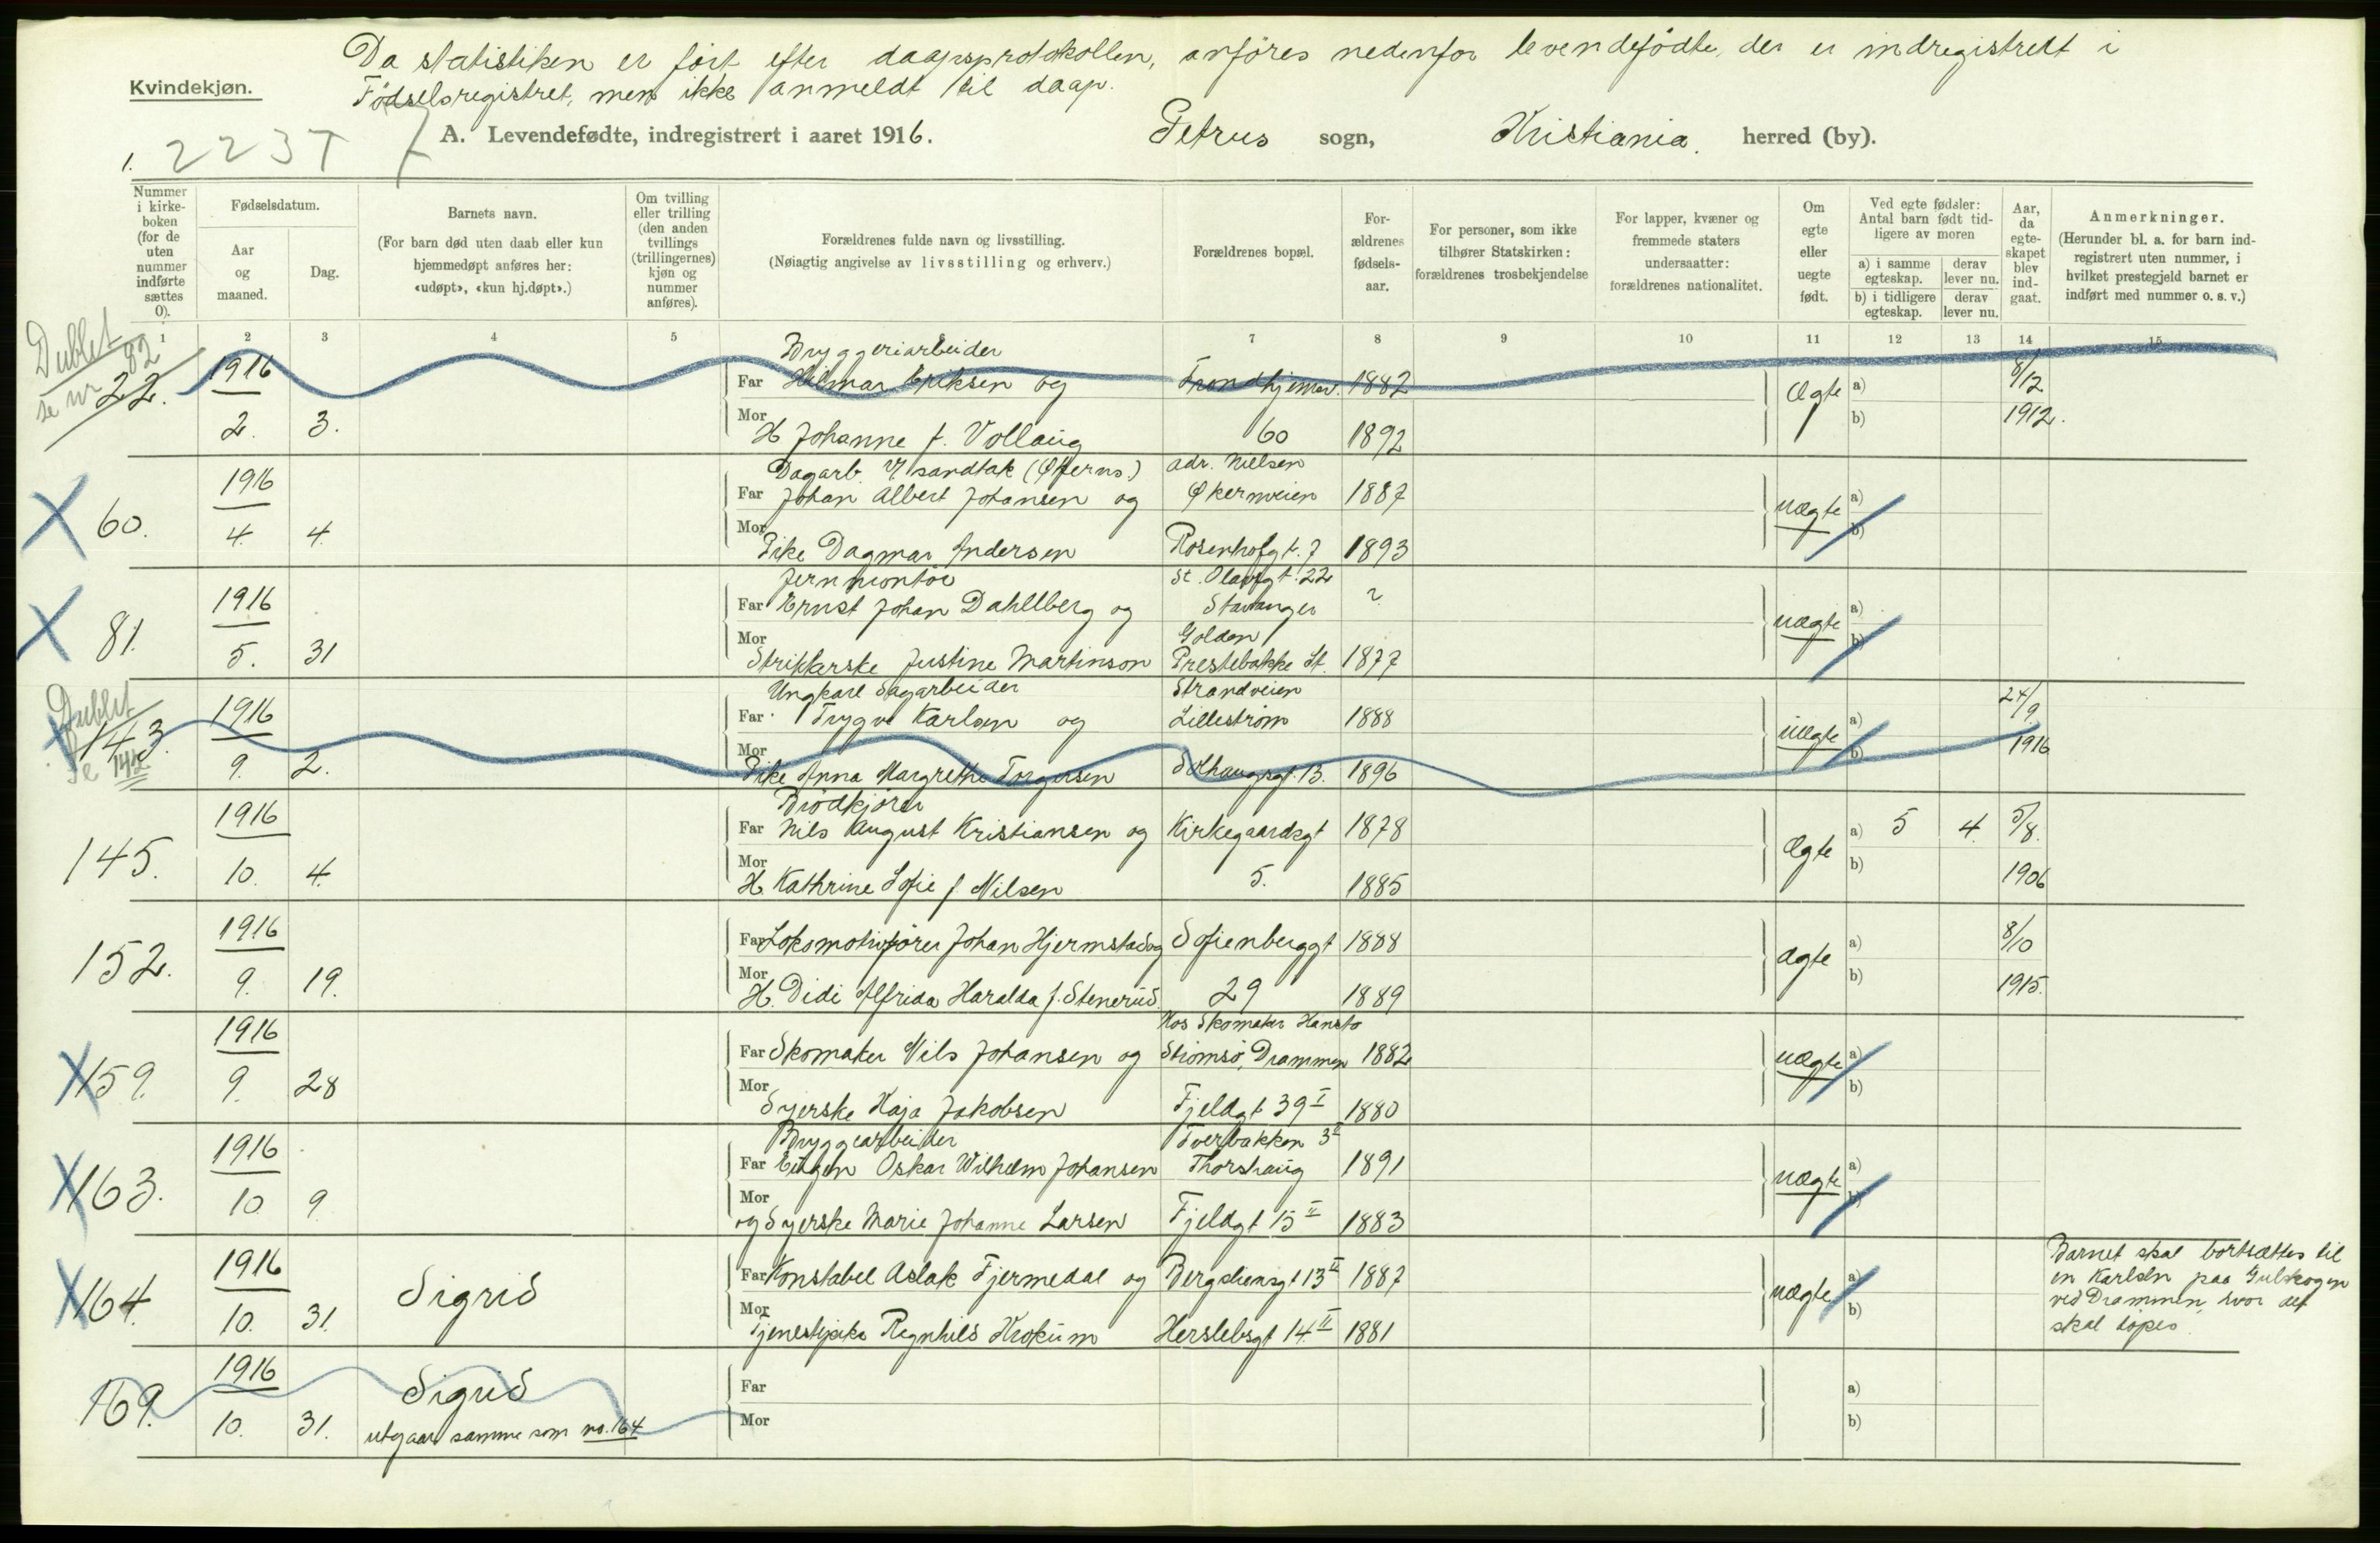 Da statistiken er ført efter daapsprotokollen, anføres nedenfor levendefødte, der er indregistrert i
Kvindekjøn.
Fødselsregistret, men ikke anmeldt til daap.
1. 2237
A. Levendefødte, indregistrert i aaret 1916. Petrus sogn, Kristiania. herred (by).
Nummer i kirke-boken (for de uten nummer indførte sættes 0).
Fødselsdatum.
Aar og maaned.
Dag.
Barnets navn.
(For barn død uten daab eller kun hjemmedøpt anføres her: «udøpt», «kun hj.døpt».)
Om tvilling eller trilling (den anden tvillings (trillingernes) kjøn og nummer anføres).
Forældrenes fulde navn og livsstilling.
(Nøiagtig angivelse av livsstilling og erhverv.)
Forældrenes bopæl.
For-ældrenes fødsels-aar.
For personer, som ikke tilhører Statskirken: forældrenes trosbekjendelse
For lapper, kvæner og fremmede staters undersaatter: forældrenes nationalitet.
Om egte eller uegte født.
Ved egte fødsler: Antal barn født tid-ligere av moren
a) i samme egteskap. derav lever nu.
b) i tidligere egteskap. derav lever nu.
Aar, da egte-skapet blev ind-gaat.
Anmerkninger.
(Herunder bl. a. for barn ind-registrert uten nummer, i hvilket prestegjeld barnet er indført med nummer o. s. v.)
1 2 3 4 5 6 7 8 9 10 11 12 13 14 15
Dublet
se nr 82
Bryggeriarbeider
22. 1916 Far Hilmar Eriksen og Trondhjemsv. 1882 Ægte a) 8/12
2. 3. Mor H Johanne f. Vollaug 60 1892 b) 1912.
Dagarb. v/ sandtak (Økerns) adr. Nielsen
60. 1916 Far Johan Albert Johansen og Økernveien 1887 uægte a)
4. 4. Mor Pike Dagmar Andersen Rosenhofgt. 7 1893 b)
Jernmontør St. Olavsgt. 22
81. 1916 Far Ernst Johan Dahllberg og Stavanger ? uægte a)
Golden
5. 31 Mor Strikkerske Justine Martinson Prestebakke St. 1877 b)
Ungkarl Sagarbeider Strandveien
Dublet
143. 1916 Far Trygve Karlsen og Lillestrøm 1888 uægte a) 24/9
Se 142
9. 2. Mor Pike Anna Margrethe Torgersen Solhaugsgt. 13. 1896 b) 1916
Brødkjører
145. 1916 Far Nils August Kristiansen og Kirkegaardsgt 1878 Ægte a) 5 4. 5/8.
10. 4. Mor H. Kathrine Sofie f. Nilsen 5. 1885 b) 1906
152. 1916 Far Lokomotivfører Johan Hjermstad og Sofienberggt 1888 Ægte a) 8/10
9. 19. Mor H. Didi Alfrida Haralda f. Stenerud. 29 1889 b) 1915.
Hos Skomaker
159. 1916 Far Skomaker Nils Johansen og Strømsø, Drammen 1882 uægte a)
9. 28 Mor Syerske Kaja Jakobsen Fjeldgt 39 I 1880 b)
Bryggearbeider Tverbakken 3 II
163. 1916 Far Eugen Oskar Wilhelm Johansen Thorshaug 1891 uægte a)
10 9 Mor og Syerske Marie Johanne Larsen Fjeldgt 15 II 1883 b)
164. 1916 Sigrid Far Konstabel Aslak Fjermedal og 13 II 1887 uægte a)
10. 31. Mor Tjenestepike Ragnhild Krokum Herslebsgt 14 II 1881 b)
Barnet skal bortsættes til
en Karlsen paa Gulskogen
ved Drammen, hvor det
skal døpes.
169. 1916 Sigrid Far a)
10. 31. utgaar samme som no. 164 Mor b)